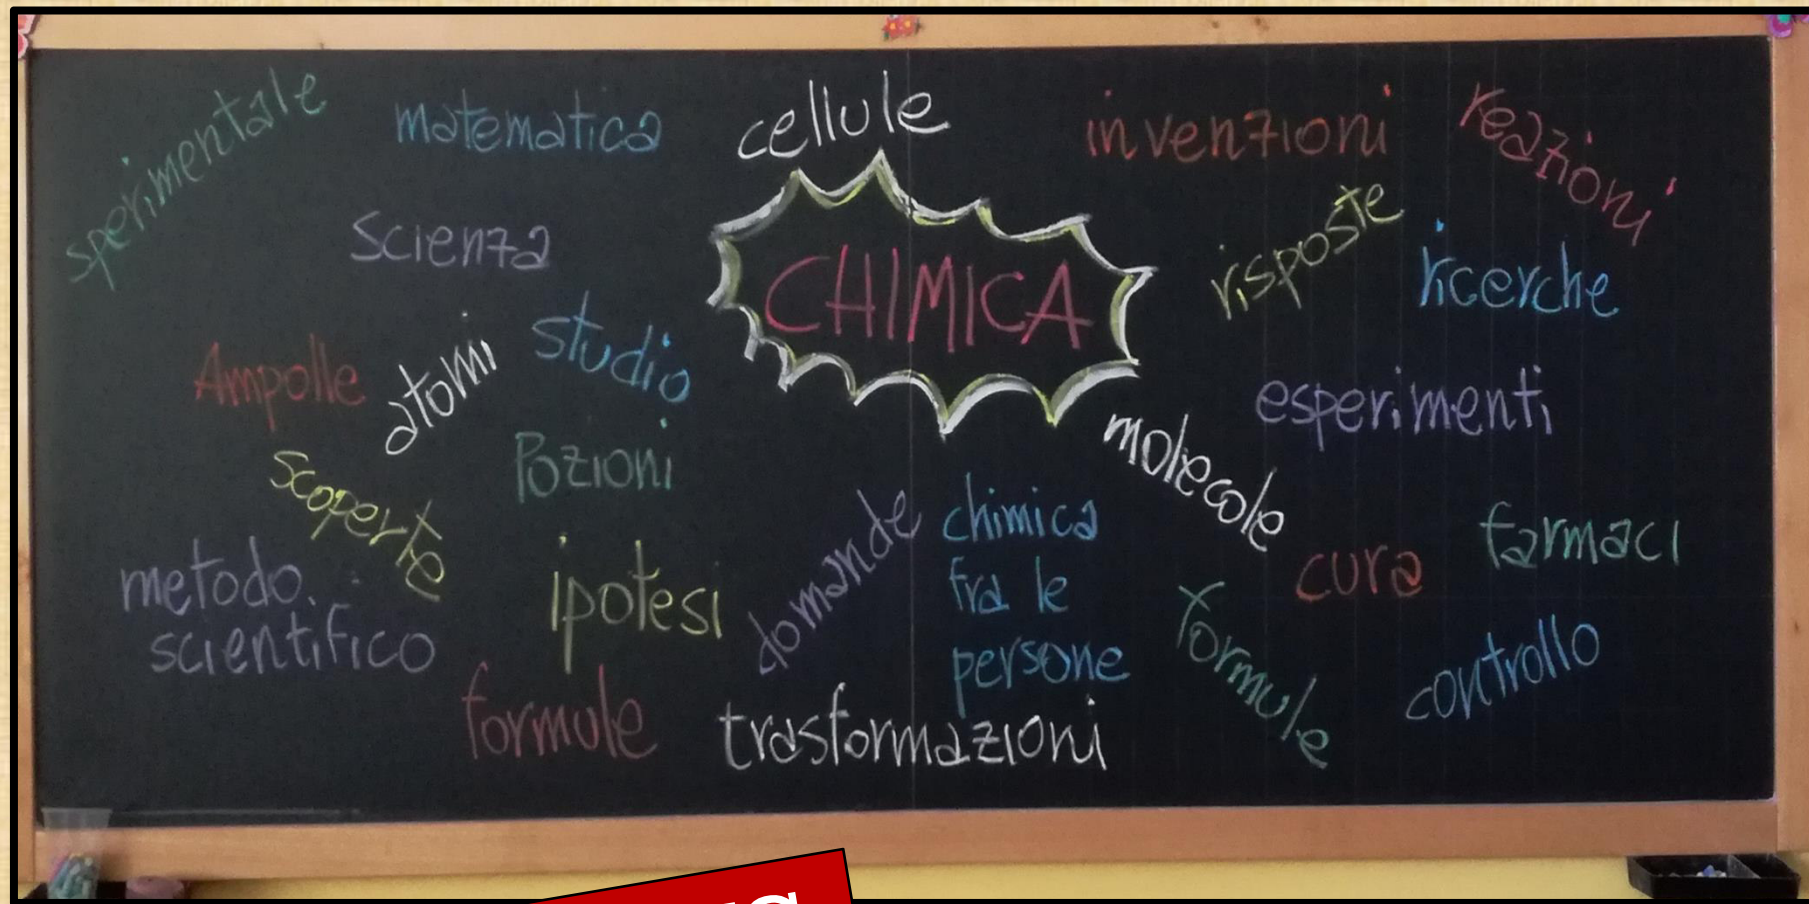 sperimentale
matematica
cellule
invenzioni
reazioni
scienza
CHIMICA
risposte
ricerche
Ampolle
atomi
studio
esperimenti
scoperte
Pozioni
molecole
metodo
scientifico
ipotesi
domande
chimica
fra le
persone
cura
farmaci
formule
trasformazioni
formule
controllo